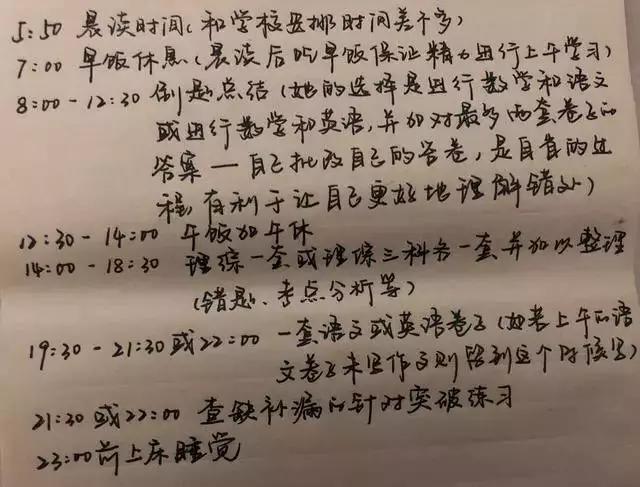 5:50 晨读时间(和学校安排时间差不多)
7:00 早饭休息(晨读后吃早饭保证精力进行上午学习)
8:00-12:30 刷题总结(她的选择是进行数学和语文
或进行数学和英语,并加对最多两套卷子的
答案—自己批改自己的答卷,是自省的过
程,有利于让自己更好地理解错处)
12:30-14:00 午饭加午休
14:00-18:30 理综一套或理综三科各一套并加以整理
(错题、考点分析等)
19:30-21:30或22:00 一套语文或英语卷子(如若上午的语
文卷子未写作文则留到这个时候写)
21:30或22:00 查缺补漏的针对突破练习
23:00前上床睡觉